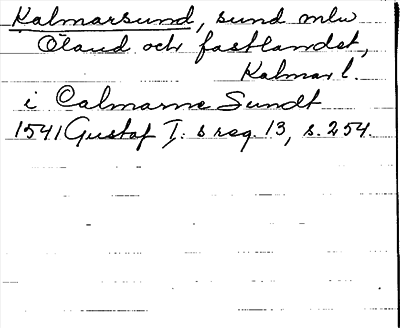 Kalmarsund, sund mlw
Öland och fastlandet,
Kalmar l.
i Calmarne Sundt
1541 Gustaf I:s reg. 13, s. 254.